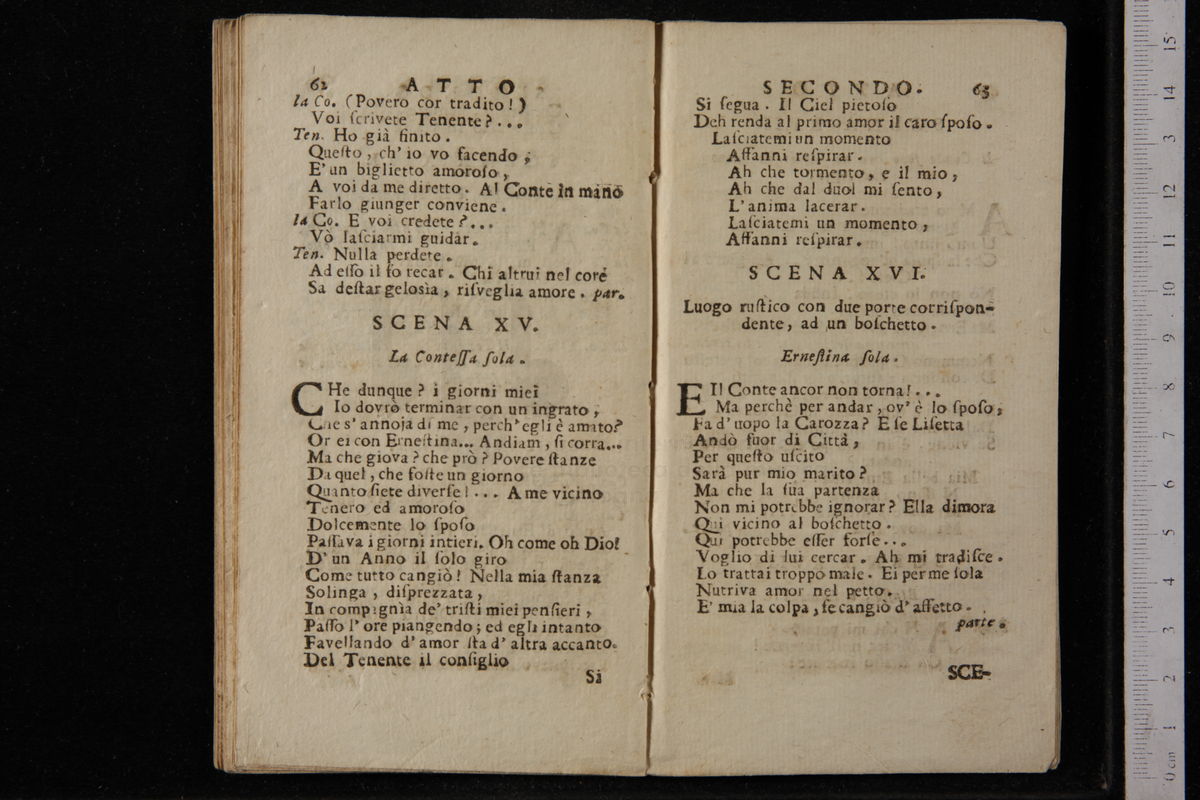 62 ATTO
la Co. (Povero cor tradito!)
Voi ſcrivete Tenente?...
Ten. Ho già finito.
Queſto, ch' io vo facendo;
E' un biglietto amoroſo,
A voi da me diretto. Al Conte in mano
Farlo giunger conviene.
la Co. E voi credete?...
Vò laſciarmi guidar.
Ten. Nulla perdete.
Ad eſſo il fo recar. Chi altrui nel core
Sa deſtar gelosìa, riſveglia amore. par.
SCENA XV.
La Conteſſa ſola.
CHe dunque? i giorni miei
Io dovrò terminar con un ingrato,
Che s' annoja di me, perch' egli è amato?
Or ei con Erneſtina... Andiam, ſi corra...
Ma che giova? che prò? Povere ſtanze
Da quel, che foſte un giorno
Quanto ſiete diverſe!... A me vicino
Tenero ed amoroſo
Dolcemente lo ſpoſo
Paſſava i giorni intieri. Oh come oh Dio!
D' un Anno il ſolo giro
Come tutto cangiò! Nella mia ſtanza
Solinga, diſprezzata,
In compignìa de' triſti miei penſieri,
Paſſo l' ore piangendo; ed egli intanto
Favellando d' amor ſta d' altra accanto.
Del Tenente il conſiglio
Si
SECONDO. 63
Si ſegua. Il Ciel pietoſo
Deh renda al primo amor il caro ſpoſo.
Laſciatemi un momento
Affanni reſpirar.
Ah che tormento, e il mio,
Ah che dal duol mi ſento,
L' anima lacerar.
Laſciatemi un momento,
Affanni reſpirar.
SCENA XVI.
Luogo ruſtico con due porte corriſpon-
dente, ad un boſchetto.
Erneſtina ſola.
E Il Conte ancor non torna!...
Ma perchè per andar, ov' è lo ſpoſo,
Fa d' uopo la Carozza? E ſe Liſetta
Andò fuor di Città,
Per queſto uſcito
Sarà pur mio marito?
Ma che la ſua partenza
Non mi potrebbe ignorar? Ella dimora
Qui vicino al boſchetto.
Qui potrebbe eſſer forſe...
Voglio di lui cercar. Ah mi tradiſce.
Lo trattai troppo male. Ei per me ſola
Nutriva amor nel petto.
E' mia la colpa, ſe cangiò d' affetto.
parte.
SCE-
0 cm 1 2 3 4 5 6 7 8 9 10 11 12 13 14 15